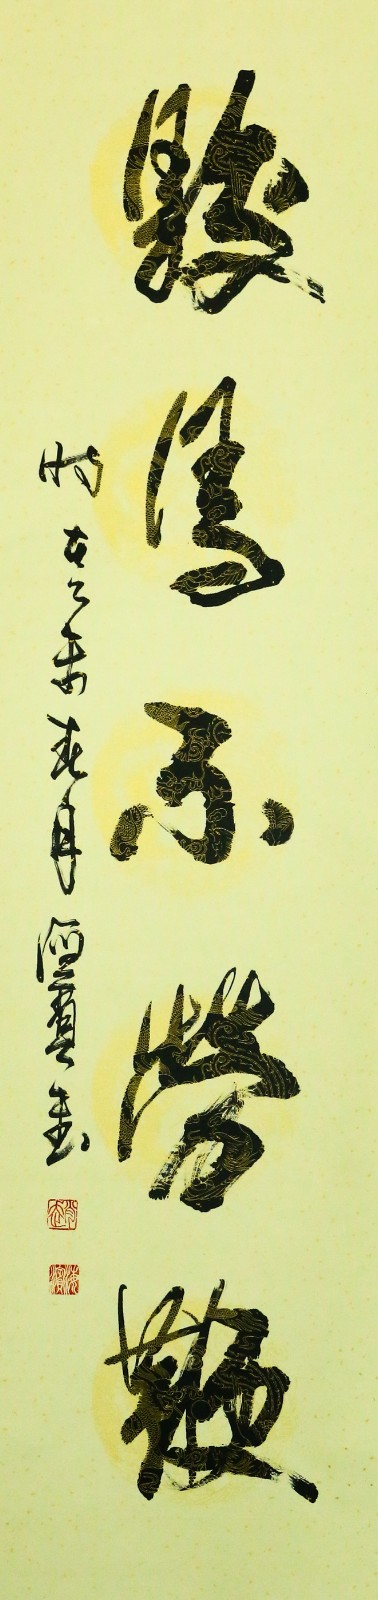 駿馬不勞鞭
時在乙未春月